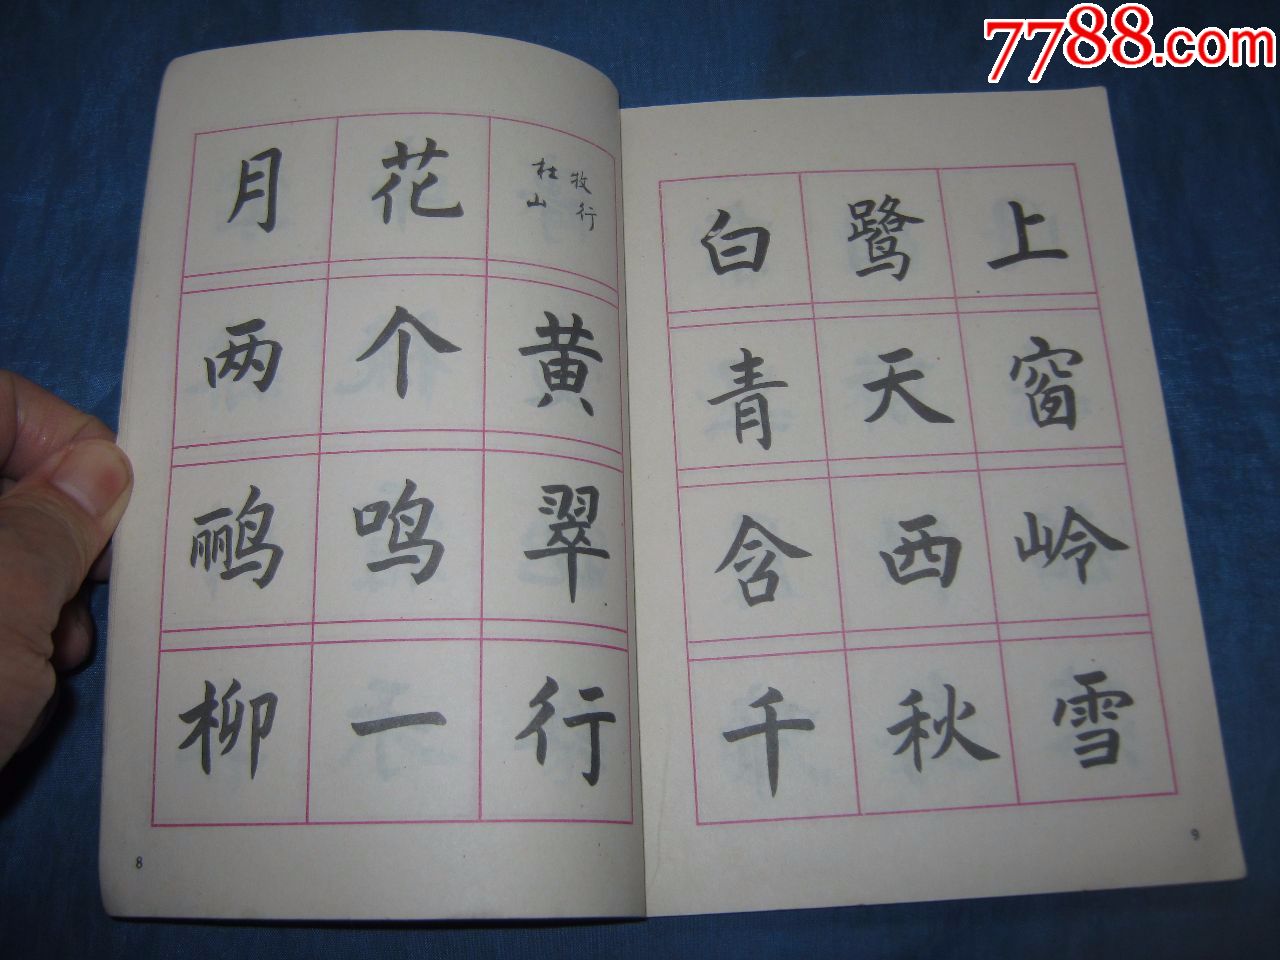 7788.com
月花
杜牧
山行
两个黄
鹂鸣翠
柳一行
8
白鹭上
青天窗
含西岭
千秋雪
9